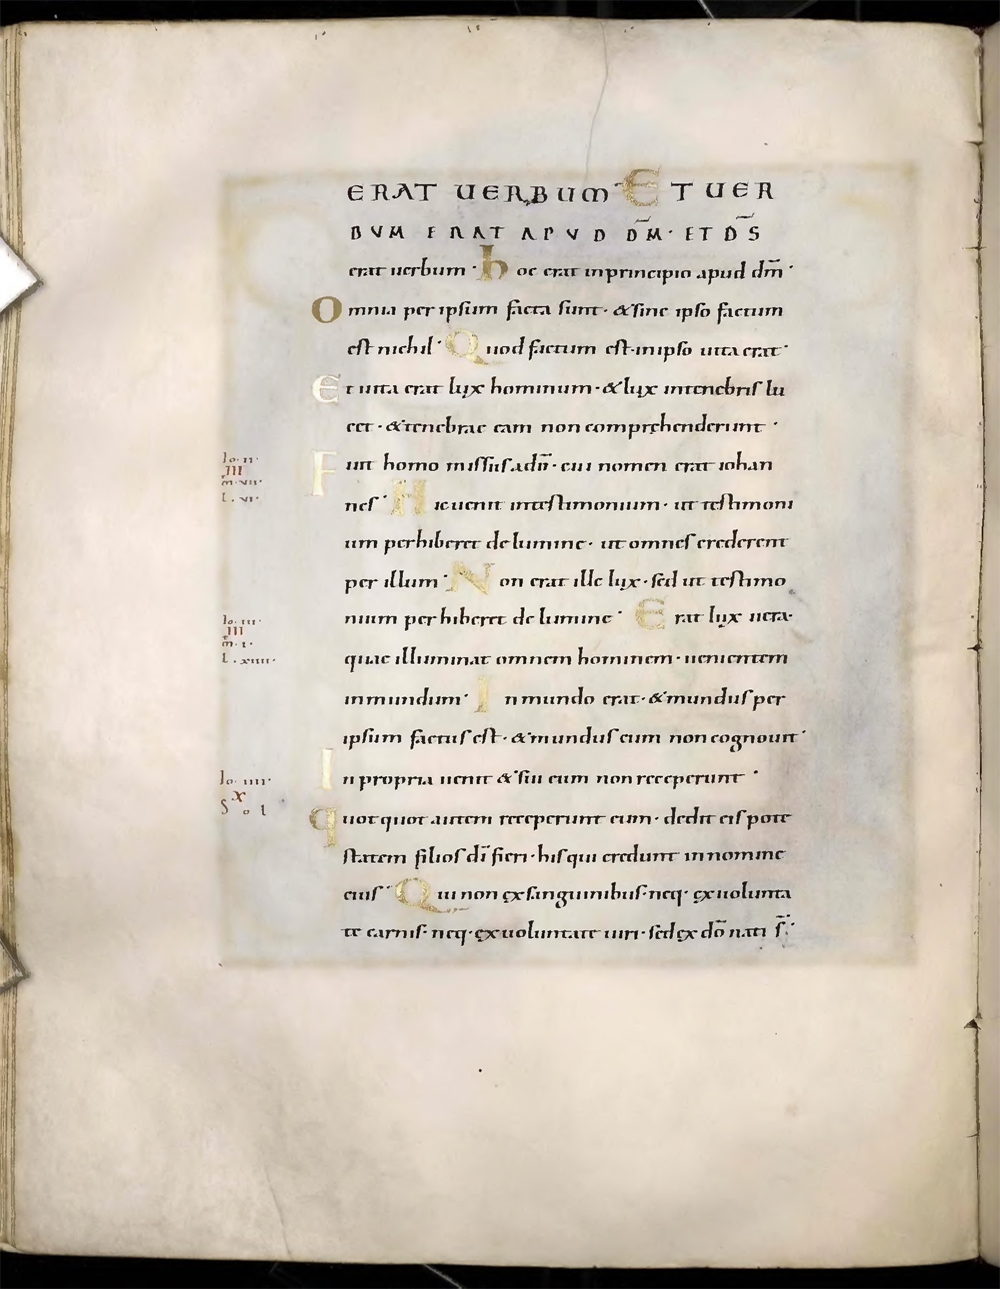 ERAT UERBUM· ET UER
BVM ERAT APVD DM̄· ET D̄S
erat uerbum· hoc erat inprincipio apud dm̄·
Omnia per ipsum facta sunt· & sine ipso factum
est nichil· Quod factum est· inipso uita erat·
Et uita erat lux hominum· & lux intenebris lu
cet· & tenebrae eam non comprehenderunt·
Fuit homo missus adō· cui nomen erat iohan
nes· Hic uenit intestimonium· ut testimoni
um perhiberet de lumine· ut omnes crederent
per illum· Non erat ille lux· sed ut testimo
nium perhiberet de lumine· Erat lux uera·
quae illuminat omnem hominem· uenientem
inmundum· In mundo erat· & mundus per
ipsum factus est· & mundus eum non cognouit·
In propria uenit & sui eum non receperunt·
quotquot autem receperunt eum· dedit eis pote
statem filios dī fieri· his qui credunt innomine
eius· Qui non ex sanguinibus· neq· ex uolunta
te carnis· neq· ex uoluntate uiri· sed ex dō nati s̄·
Io· II·
III
m· VII·
L· VI·
Io· III·
III
m· I·
L· XIIII·
Io· IIII·
X
Sol